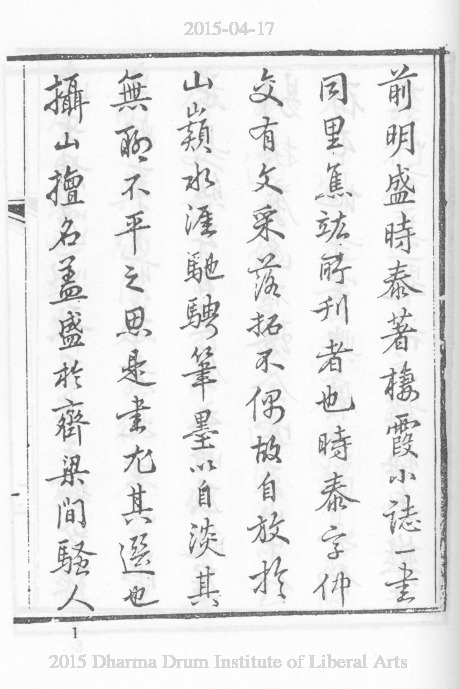 2015-04-17
前明盛時泰著棲霞小誌一書
同里焦竑所刊者也時泰字仲
交有文采落拓不偶故自放於
山巔水涯馳騁筆墨以自淡其
無聊不平之思是書尤其選也
攝山擅名盖盛於齊梁間騷人
1
2015 Dharma Drum Institute of Liberal Arts